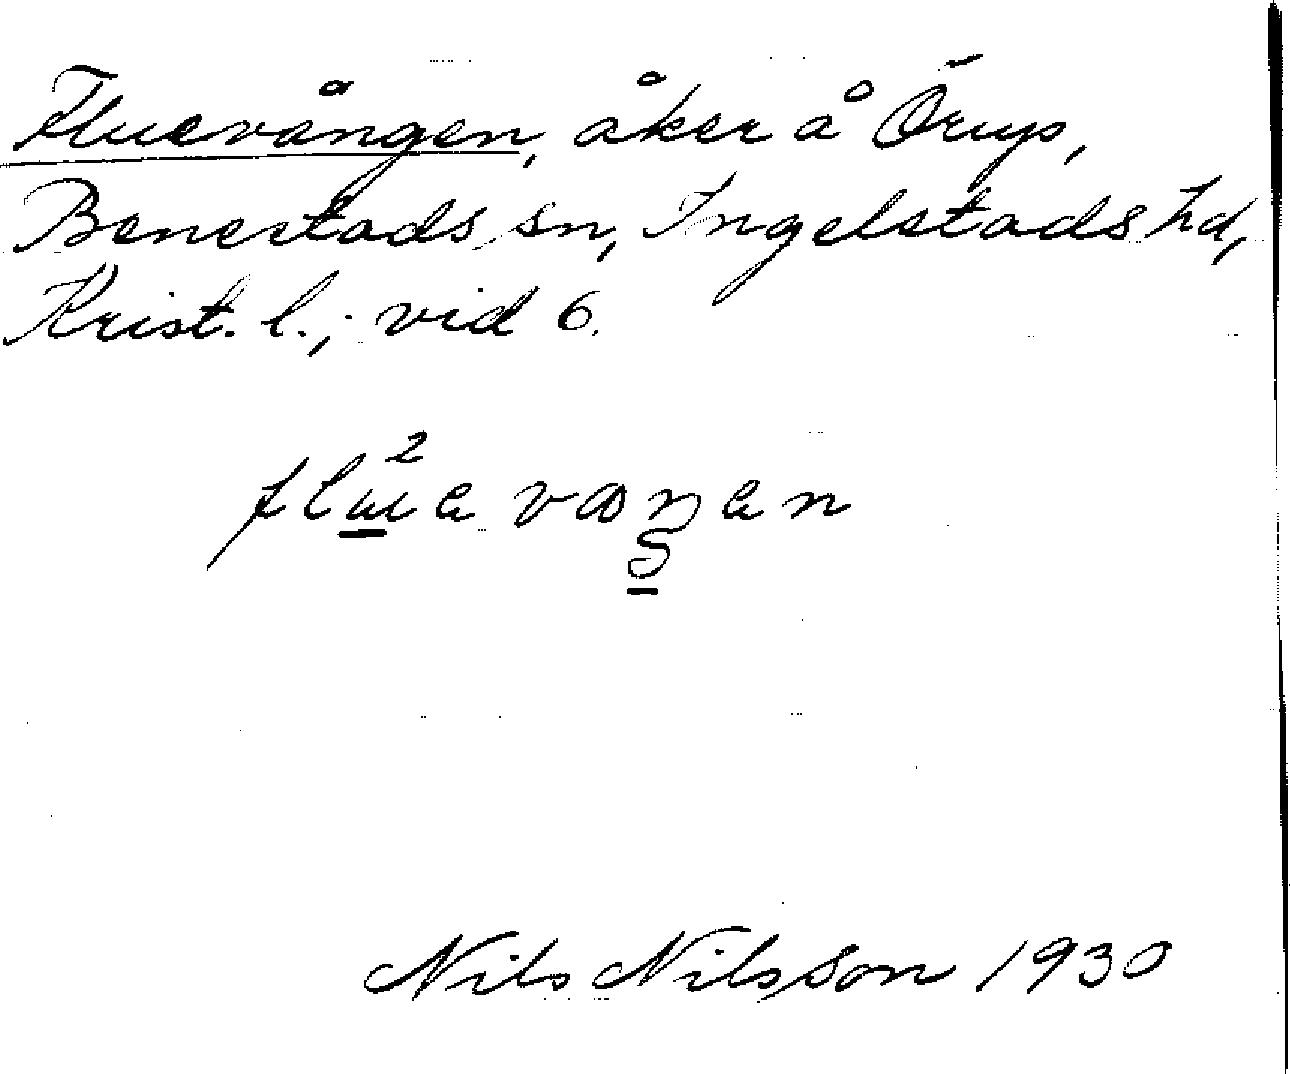 Fluevången, åker å Örup,
Benestads sn, Ingelstads hd,
Krist. l.; vid 6.
Nils Nilsson 1930